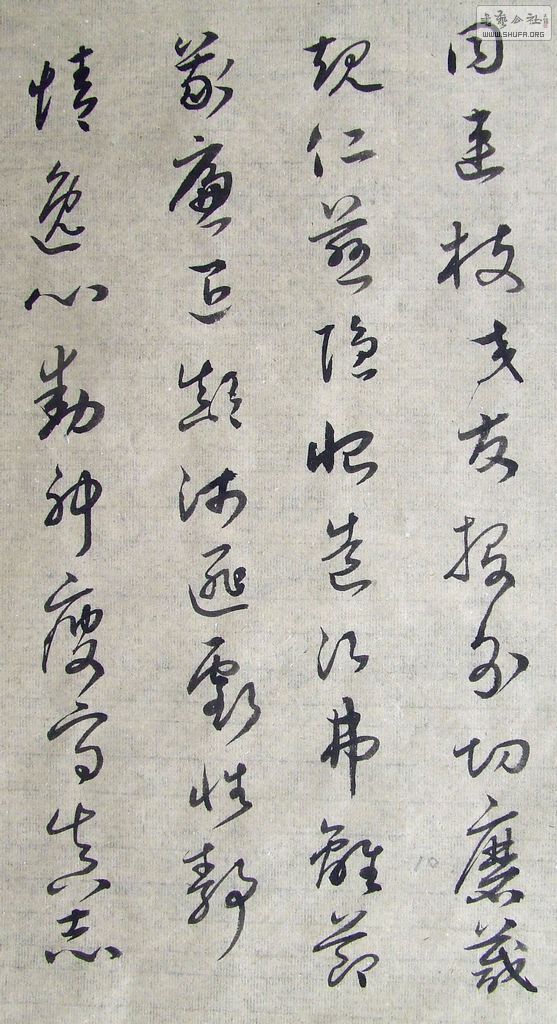 同連枝交友投分切磨箴
規仁慈隱惻造次弗離節
義廉退顛沛匪虧性靜
情逸心動神疲守真志
WWW.SHUFA.ORG